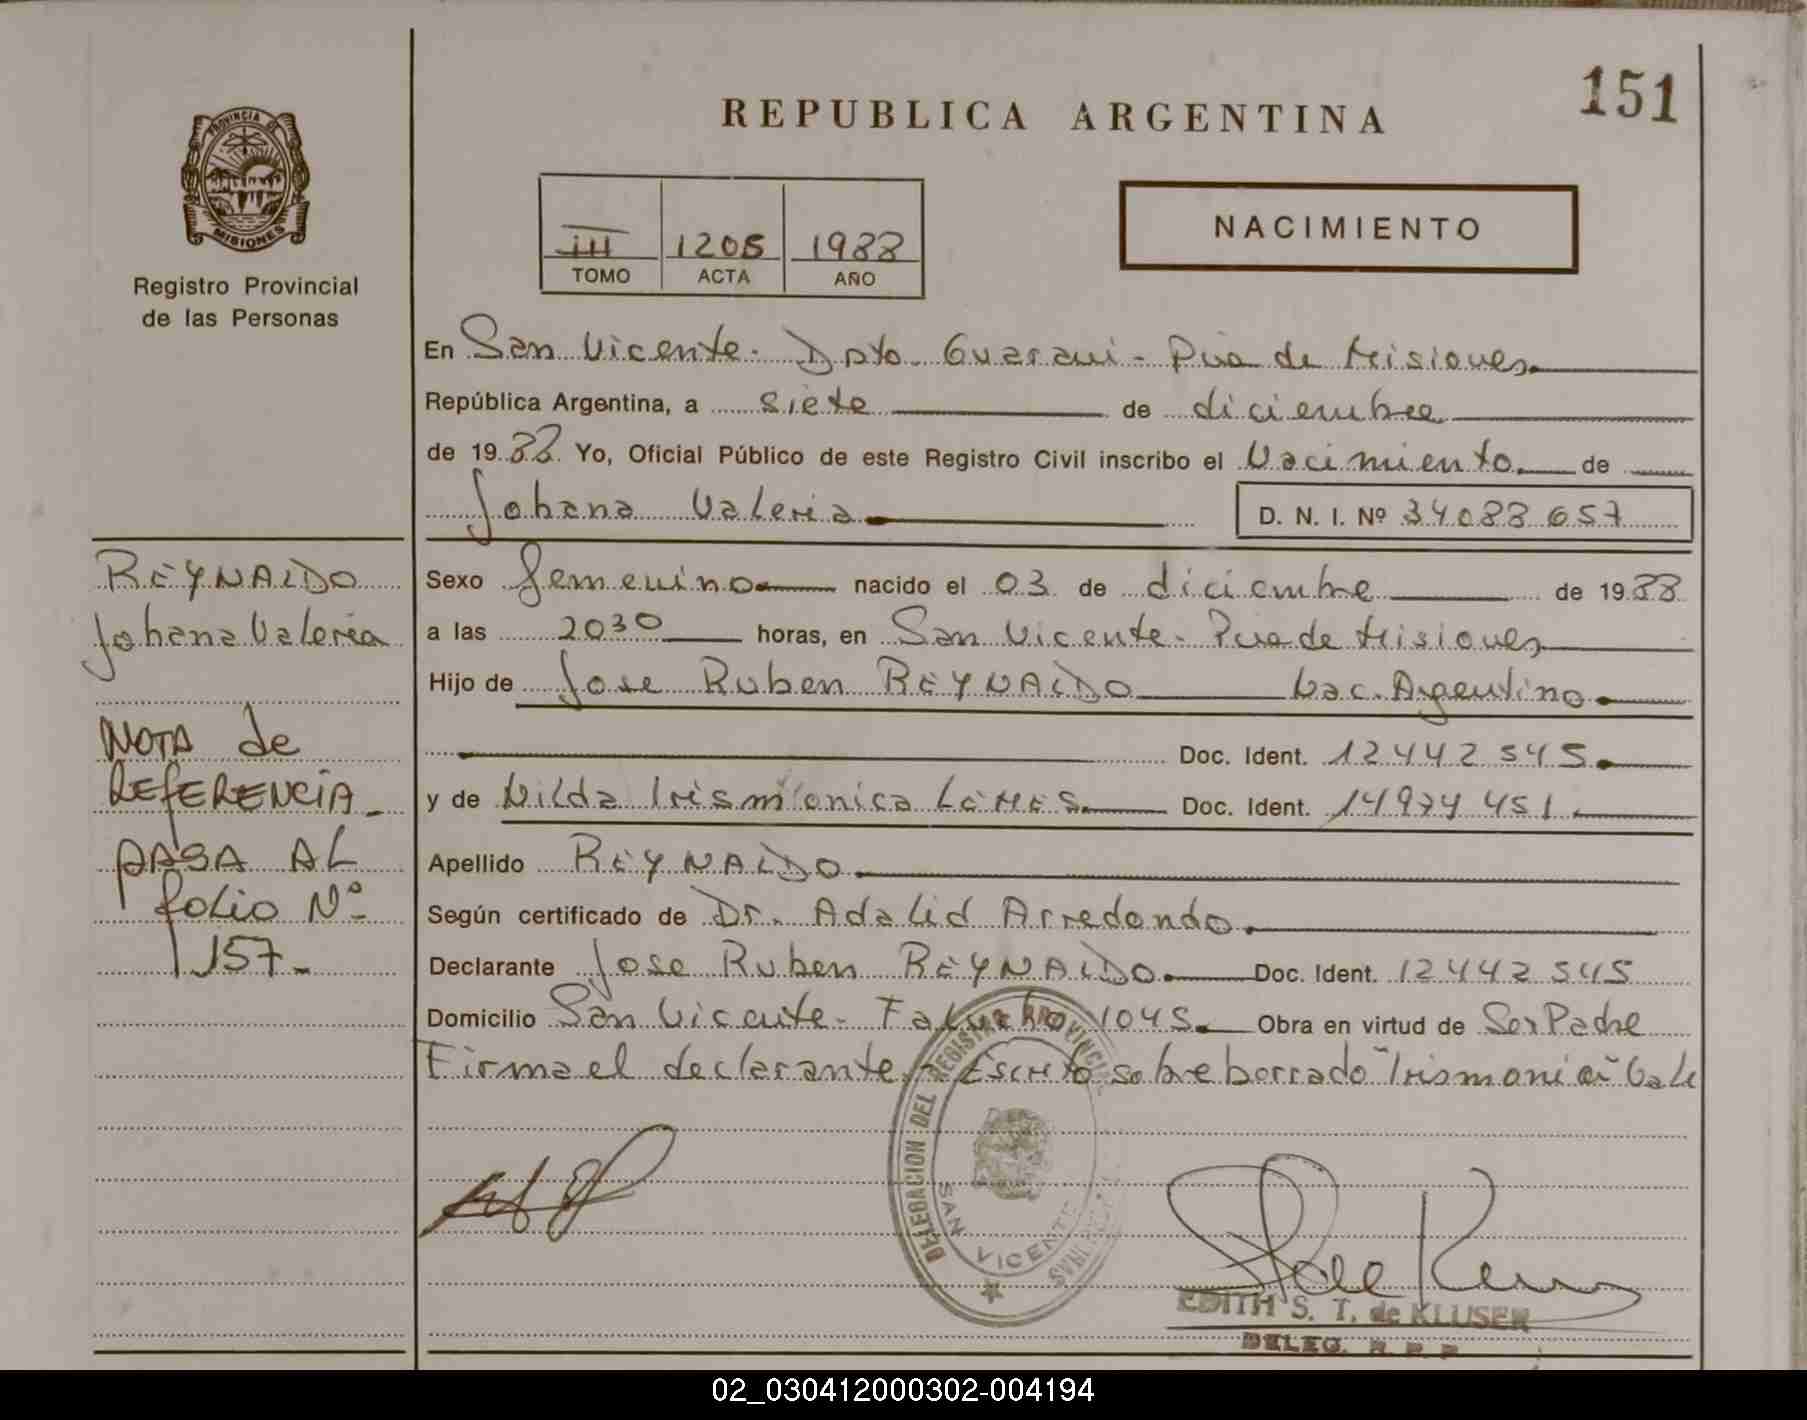 151
REPUBLICA ARGENTINA
PROVINCIA DE
MISIONES
Registro Provincial
de las Personas
III 1205 1988
TOMO ACTA AÑO
NACIMIENTO
En San Vicente- Dpto- Guarani- Pcia de Misiones
República Argentina, a siete de diciembre
de 1988 Yo, Oficial Público de este Registro Civil inscribo el Nacimiento de
Johana Valeria D. N. I. Nº 34088657
REYNALDO
Johana Valeria
NOTA de
REFERENCIA-
PASA AL
folio Nº
157-
Sexo femenino nacido el 03 de diciembre de 1988
a las 2030 horas, en San Vicente- Pcia de Misiones
Hijo de Jose Ruben REYNALDO Nac. Argentino
Doc. Ident. 12442545
y de Nilda Irismonica LEMES Doc. Ident. 14974451
Apellido REYNALDO
Según certificado de Dr. Adalid Arredondo
Declarante Jose Ruben REYNALDO Doc. Ident. 12442545
Domicilio San Vicente- Falucho 1045 Obra en virtud de Ser Padre
Firma el declarante- Escrito sobre borrado "Irismonica" Vale
DELEGACION DEL REGISTRO PROVINCIAL
SAN VICENTE
EDITH S. T. de KLUSER
DELEG. R. P. P.
02_030412000302-004194